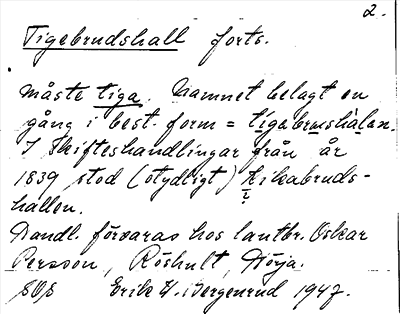 2.
Tigebrudshall forts.
måste tiga. Namnet belagt en
gång i best. form = tigebrushalan.
I Skifteshandlingar från år
1839 stod (otydligt) Kikabruds-
hallen.
Handl. förvaras hos lantbr. Oskar
Persson, Röshult, Hörja.
Erik H. Bergenrud 1947.